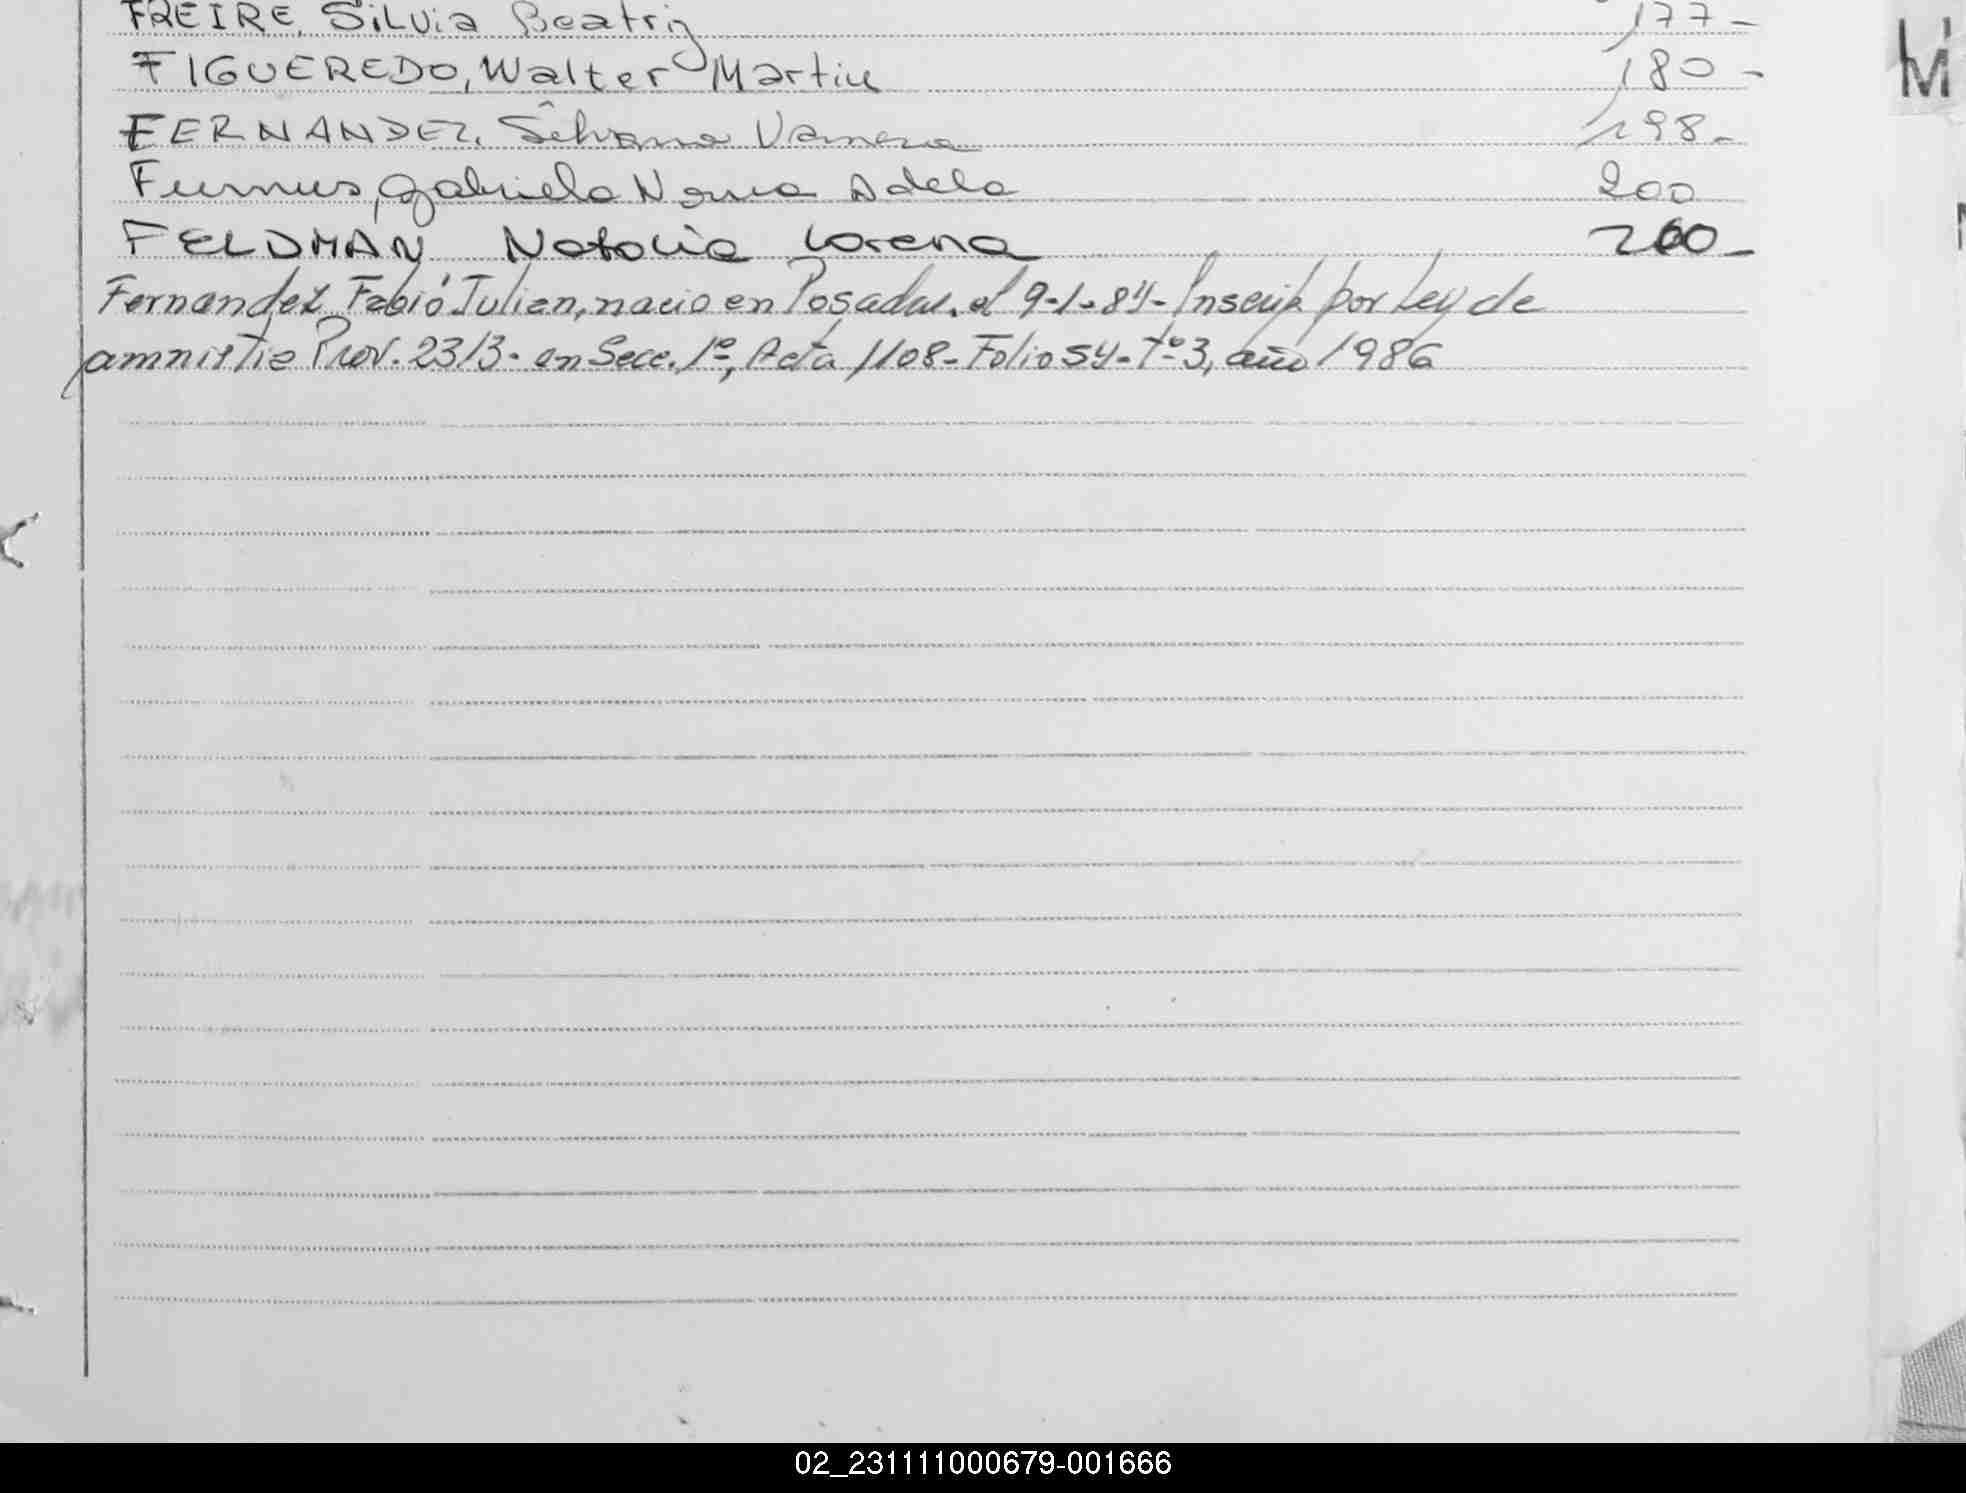 FREIRE, Silvia Beatriz 177-
FIGUEREDO, Walter Martin 180-
FERNANDEZ, Silvana Vanesa 198-
Furnus, Gabriela Norma Adela 200
FELDMAN Natalia Lorena 200-
Fernandez, Fabio Julian, nacio en Posadas, el 9-1-84- Inscrip. por Ley de
amnistia Prov. 2313- en Secc. 1º, Acta 1108- Folio 54- Tº 3, año 1986
M
02_231111000679-001666